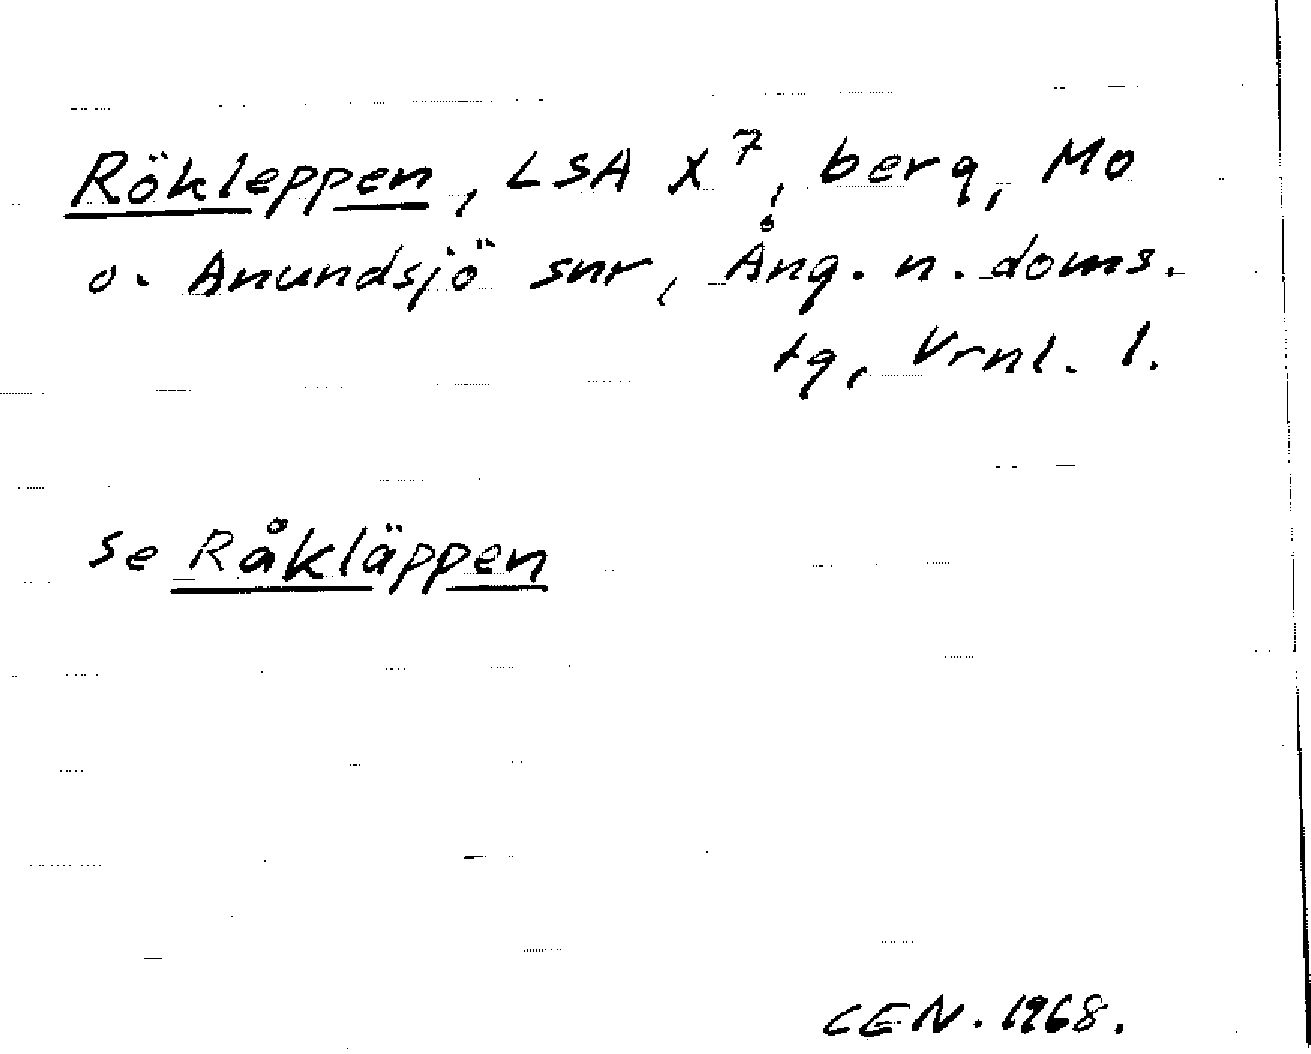 Rökleppen, LSA X⁷, berg, Mo
o. Anundsjö snr, Ång. n. doms.
tg, Vrnl. l.
se Råkläppen
CEN. 1968.